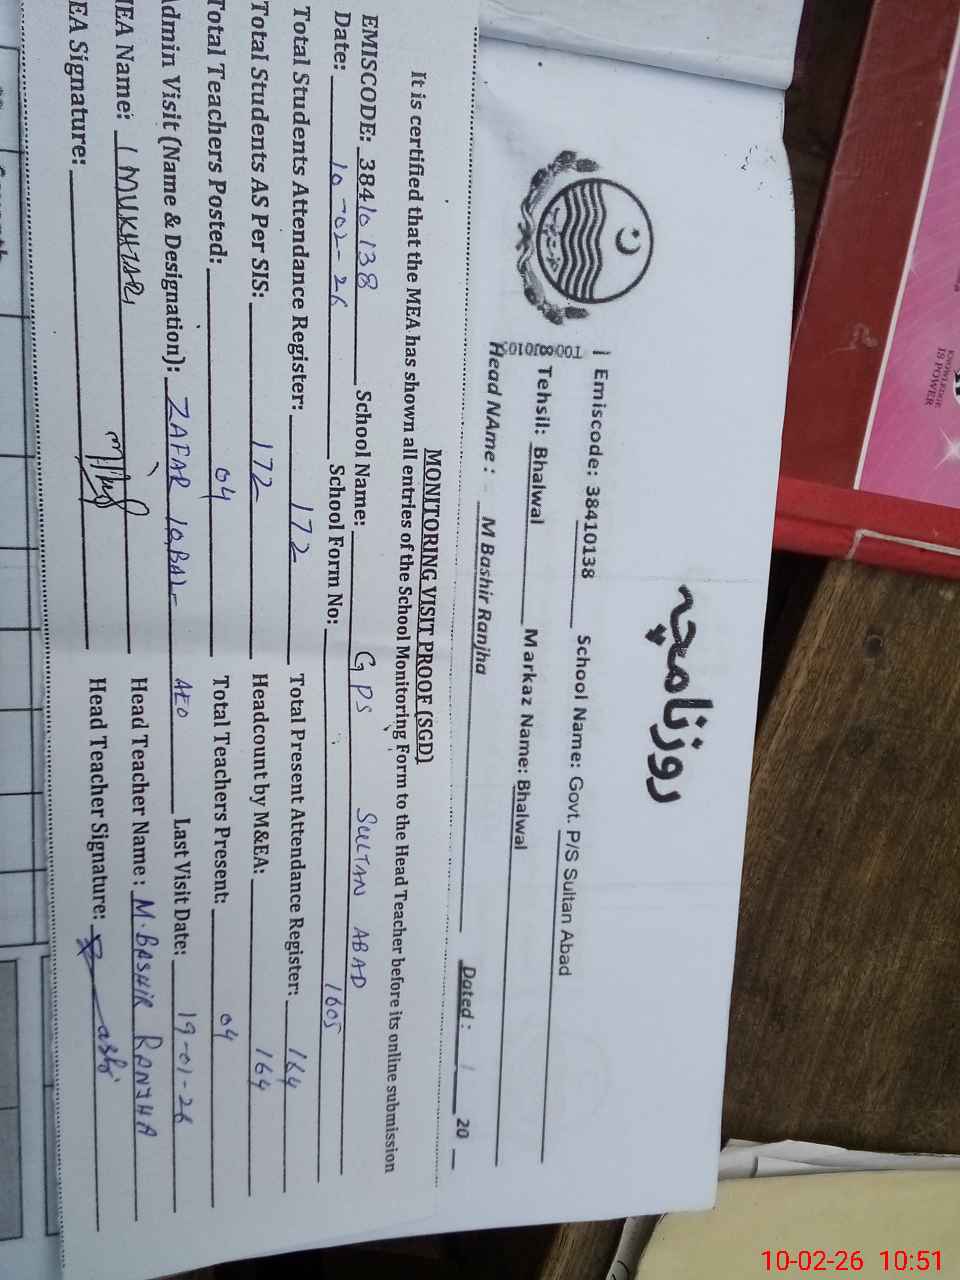 روزنامچہ
Emiscode: 38410138 School Name: Govt. P/S Sultan Abad
Tehsil: Bhalwal Markaz Name: Bhalwal
Head NAme: M Bashir Ranjha Dated: / 20
MONITORING VISIT PROOF (SGD)
It is certified that the MEA has shown all entries of the School Monitoring Form to the Head Teacher before its online submission
EMISCODE: 38410138 School Name: GPS SULTAN ABAD
Date: 10-02-26 School Form No: 1605
Total Students Attendance Register: 172 Total Present Attendance Register: 164
Total Students AS Per SIS: 172 Headcount by M&EA: 164
Total Teachers Posted: 04 Total Teachers Present: 04
Admin Visit (Name & Designation): ZAFAR IQBAL AEO Last Visit Date: 19-01-26
EA Name: MUKHTAR Head Teacher Name: M. BASHIR RANJHA
EA Signature: Head Teacher Signature:
KNOWLEDGE
IS POWER
10-02-26 10:51